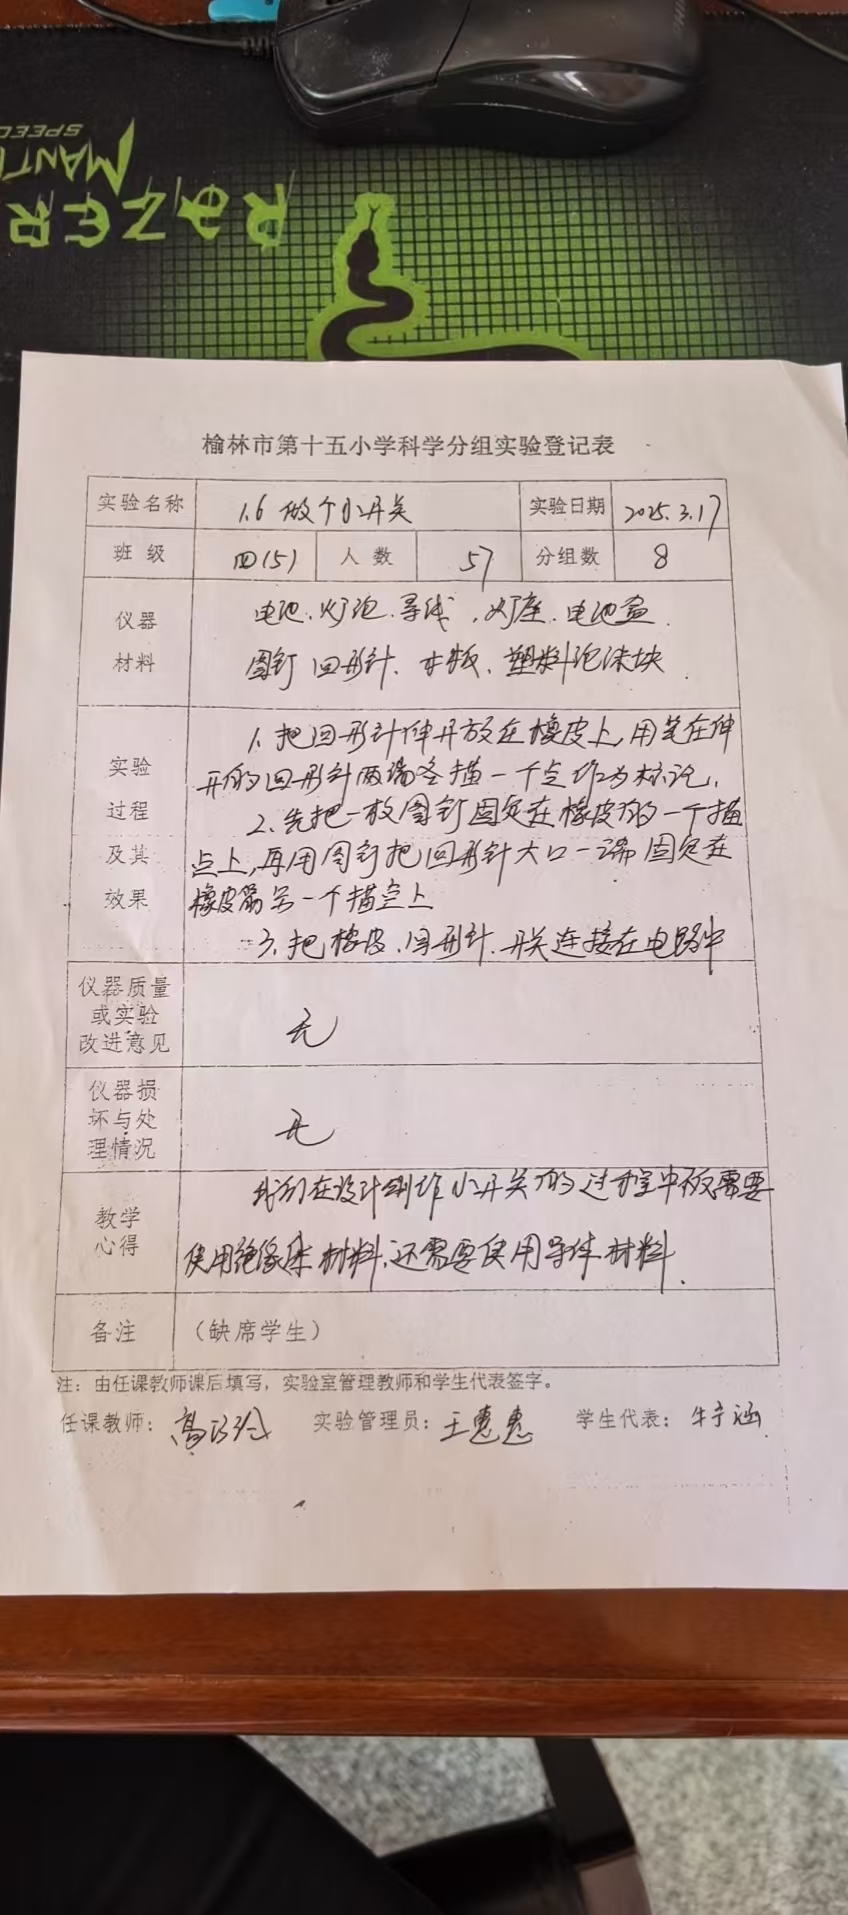 RAZER
MANTI
SPEED
榆林市第十五小学科学分组实验登记表
实验名称 1.6 做个小开关 实验日期 2025.3.17
班级 四(5) 人数 57 分组数 8
仪器材料
电池、灯泡、导线、灯座、电池盒
图钉 回形针、木板、塑料泡沫块
实验过程及其效果
1、把回形针伸开放在橡皮上,用笔在伸
开的回形针两端各描一个点作为标记,
2、先把一枚图钉固定在橡皮的一个描
点上,再用图钉把回形针大口一端固定在
橡皮筋另一个描点上
3、把橡皮、回形针、开关连接在电路中
仪器质量或实验改进意见 无
仪器损坏与处理情况 无
教学心得
我们在设计制作小开关的过程中不仅需要
使用绝缘体材料,还需要使用导体材料.
备注 (缺席学生)
注:由任课教师课后填写,实验室管理教师和学生代表签字。
任课教师: 实验管理员:王惠惠 学生代表:牛宁涵